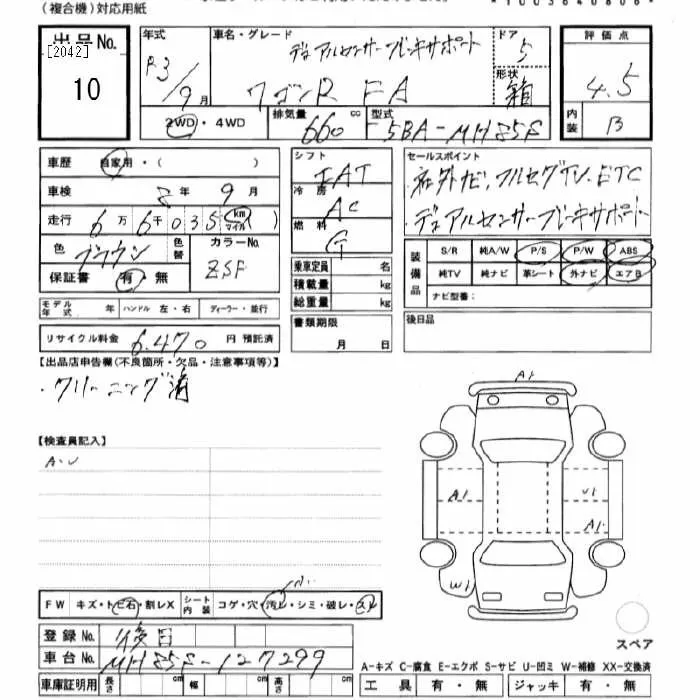 (複合機)対応用紙
*1003640806*
出品No. 年式 車名・グレード デュアルセンサーブレーキサポート ドア 評価点
[2042] R3 5 4.5
10 9月 ワゴンR FA 形状 箱
2WD・4WD 排気量 660 cc 型式 5BA-MH85S 内装 B
車歴 自家用・( ) シフト FAT セールスポイント
車検 8年 9月 冷房 AC 社外ナビ、フルセグTV、ETC
走行 6万6千035 km マイル ) 燃料 G ・デュアルセンサーブレーキサポート
色 ブラウン 色替 カラーNo. ZSF
乗車定員 名 装備品 S/R 純A/W P/S P/W ABS
保証書 有・無 積載量 kg 純TV 純ナビ 革シート 外ナビ エアB
総重量 kg ナビ型番:
モデル年式 年 ハンドル 左・右 ディーラー・並行 書類期限 月 日 後日品
リサイクル料金 6,470 円 預託済
【出品店申告欄(不良箇所・欠品・注意事項等)】
・クリーニング済
A1
【検査員記入】
A・U
A1 U1
A1
W1
FW キズ・トビ石・割レX シート内装 コゲ・穴・汚レ・シミ・破レ・スレ
登録No. 後日 スペア
車台No. MH85S-127299 A-キズ C-腐食 E-エクボ S-サビ U-凹ミ W-補修 XX-交換済
車庫証明用 長さ cm 幅 cm 高さ cm 工具 有・無 ジャッキ 有・無